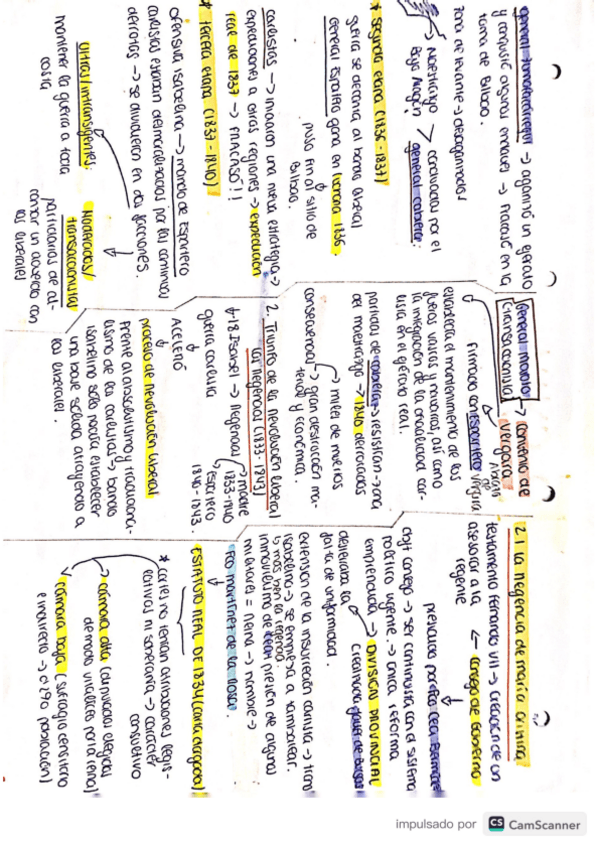 general Zumalacárregui → organizó un ejército
y conquistó algunos enclaves → Fracasó en la
toma de Bilbao.
zona de levante → desorganizados
Maestrazgo
Bajo Aragón
conducidas por el
general Cabrera.
* segunda etapa (1836 - 1837)
guerra se decanta al bando liberal
general Espartero gana en Luchana 1836.
puso fin al sitio de
Bilbao.
carlistas → iniciaron una nueva estrategia →
expediciones a otras regiones → expedición
real de 1837 → FRACASÓ!!
* tercera etapa (1837 - 1840)
ofensiva isabelina → mando de Espartero
carlistas estaban desmoralizados por las continuas
derrotas → se dividieron en dos facciones.
ultras/intransigentes:
mantener la guerra a toda
costa
Moderados/
transaccionistas
partidarios de al-
canzar un acuerdo con
los liberales
General Maroto
(transaccionista)
→ convenio de
Vergara
firmado con Espartero
establecía el mantenimiento de los
fueros vascos y navarros, así como
la integración de la oficialidad car-
lista en el ejército real.
partidas de Cabrera → resistirán → zona
del maestrazgo → 1840 derrotados
→ miles de muertos
consecuencias → gran destrucción ma-
terial y económica.
2. Triunfo de la revolución liberal
Las Regencias (1833 - 1843)
Isabel → Regencias
madre
1833-1840
Espartero
1840-1843.
guerra carlista
↓
ACELERÓ
↓
proceso de revolución liberal
Frente al absolutismo y tradiciona-
lismo de los carlistas → bando
isabelino solo podía establecer
una base sólida atrayendo a
los liberales.
2.1 La Regencia de maría cristina
testamento Fernando VII → creación de un
← consejo de Gobierno
asesorar a la
regente
presidido por Cea Bermúdez
dejó consejo → ser continuista con el sistema
político vigente → única reforma
emprendida → DIVISIÓN PROVINCIAL
creada por Javier de Burgos
derivada la
falta de uniformidad.
extensión de la insurrección carlista → trono
isabelino → se empieza a tambalear.
inmovilismo de Cea + presión de algunos
militares = Reina → nombre →
Fco Martínez de la Rosa.
ESTATUTO REAL DE 1834 (carta otorgada)
* cortes no tenían atribuciones legis-
lativas ni soberanía → carácter
consultivo
→ cámara alta (diputados elegidos
de modo vitalicio por la reina)
→ cámara baja (sufragio censitario
e indirecto → 0'2% población)
impulsado por CS CamScanner